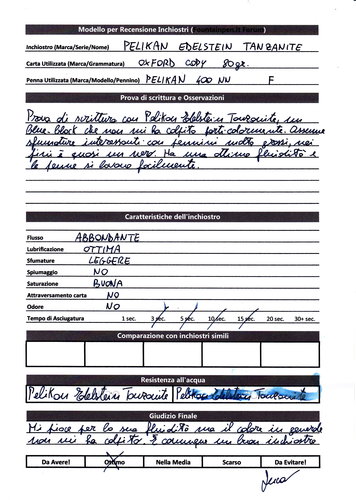 Modello per Recensione Inchiostri (fountainpen.it Forum)
Inchiostro (Marca/Serie/Nome) PELIKAN EDELSTEIN TANZANITE
Carta Utilizzata (Marca/Grammatura) OXFORD COPY 80gr.
Penna Utilizzata (Marca/Modello/Pennino) PELIKAN 400 NN F
Prova di scrittura e Osservazioni
Prova di scrittura con Pelikan Edelstein Tanzanite, un
Blue-Black che non mi ha colpito particolarmente. Assume
sfumature interessanti con pennini molto grossi, nei
fini è quasi un nero. Ha una ottima fluidità e
le penne si lavano facilmente.
Caratteristiche dell'inchiostro
Flusso ABBONDANTE
Lubrificazione OTTIMA
Sfumature LEGGERE
Spiumaggio NO
Saturazione BUONA
Attraversamento carta NO
Odore NO
Tempo di Asciugatura 1 sec. 3 sec. 5 sec. 10 sec. 15 sec. 20 sec. 30+ sec.
Comparazione con inchiostri simili
Resistenza all'acqua
Pelikan Edelstein Tanzanite Pelikan Edelstein Tanzanite
Giudizio Finale
Mi piace per la sua fluidità ma il colore in generale
non mi ha colpito. È comunque un buon inchiostro.
Da Avere! Ottimo Nella Media Scarso Da Evitare!
Luca